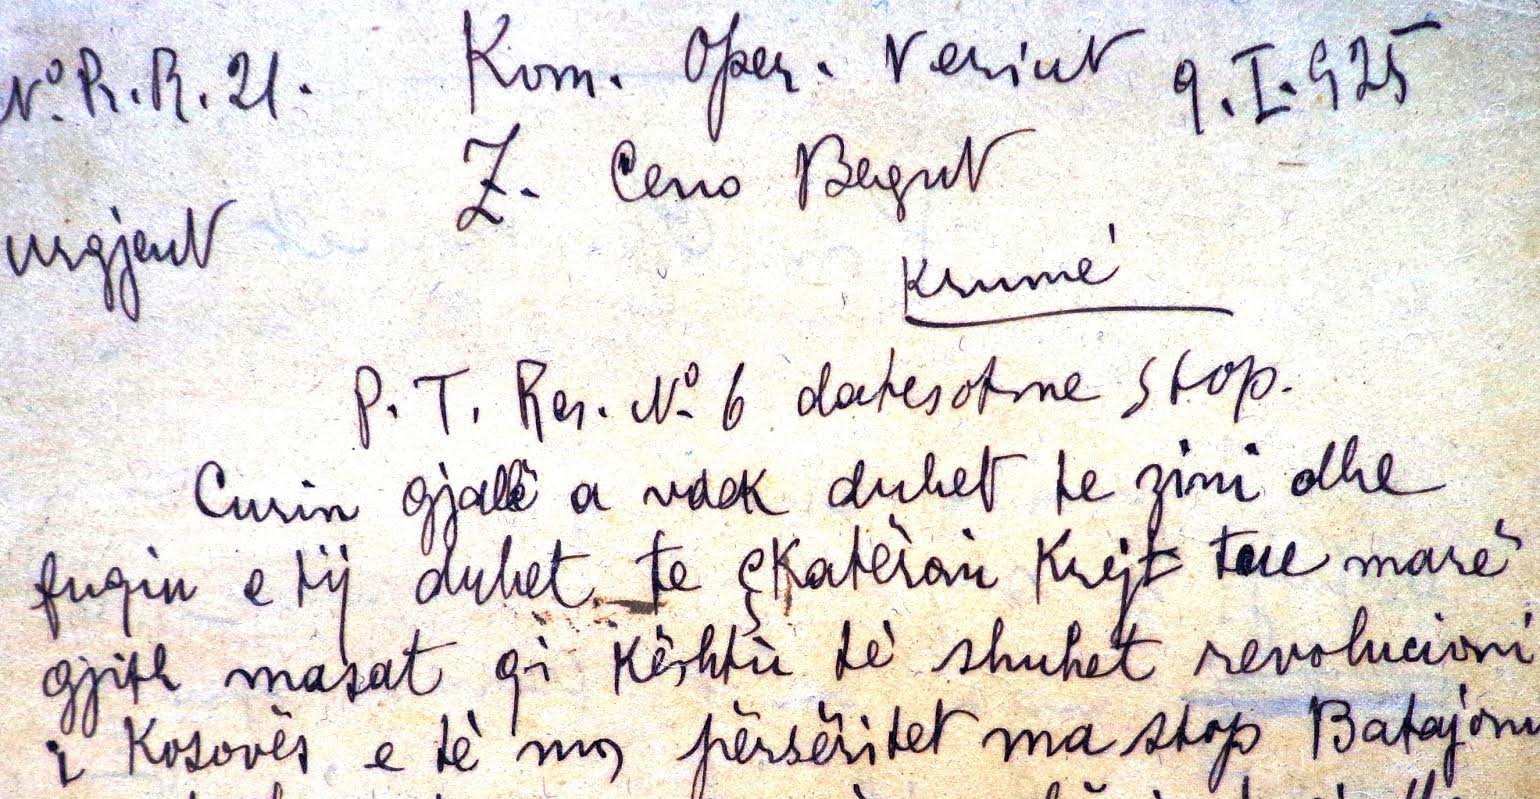 No. R.R. 21. Kom. Oper. Veriut 9.I.925
Z. Ceno Begut
urgjent
Krumë
P. T. Res. No. 6 datesotme stop.
Curin gjallë a vdek duhet te zini dhe
fuqin e tij duhet te çkatëroni krejt tue marë
gjith masat qi kështu të shuhet revolucioni
i Kosovës e të mos përsëritet ma stop Batajoni